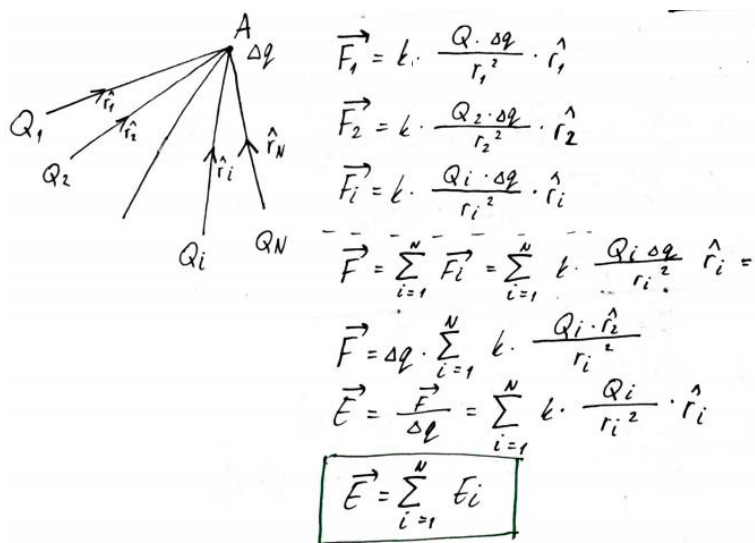 A
Δq
r̂₁
r̂₂
r̂i
r̂N
Q₁
Q₂
Qi
QN
F⃗₁ = k · (Q · Δq)/(r₁²) · r̂₁
F⃗₂ = k · (Q₂ · Δq)/(r₂²) · r̂₂
F⃗i = k · (Qi · Δq)/(ri²) · r̂i
F⃗ = ∑_{i=1}^{N} F⃗i = ∑_{i=1}^{N} k · (Qi Δq)/(ri²) r̂i =
F⃗ = Δq · ∑_{i=1}^{N} k · (Qi · r̂₂)/(ri²)
E⃗ = F⃗/Δq = ∑_{i=1}^{N} k · Qi/(ri²) · r̂i
E⃗ = ∑_{i=1}^{N} Ei